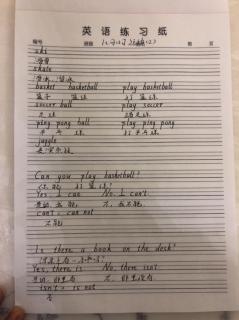 英语练习纸
编号 班级 姓名 第 页
ski
滑雪
skate
滑冰
basket basketball play basketball
篮子 篮球 打篮球
soccer ball play soccer
足球 踢足球
ping pong ball play ping pong
乒乓球 打乒乓球
juggle
Can you play basketball?
你能打篮球?
Yes, I can No, I can't.
是的,我能 不,我不能
can't = can not
不能
Is there a book on the desk?
Yes, there is No, there isn't
是的,那里有 不,那里没有
isn't = is not
否